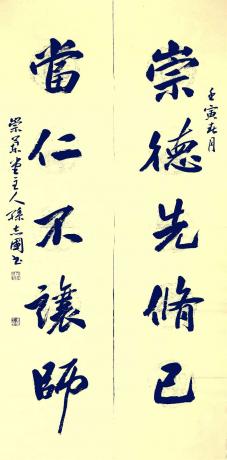 壬寅春月
崇德先脩己
當仁不讓師
崇景堂主人孫志國書